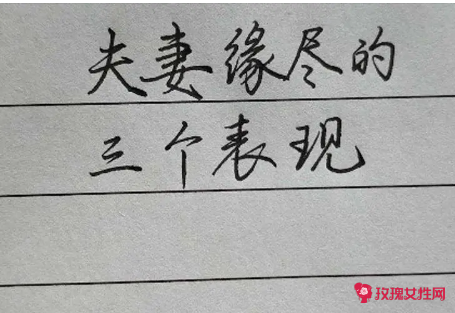 夫妻缘尽的
三个表现
玫瑰女性网